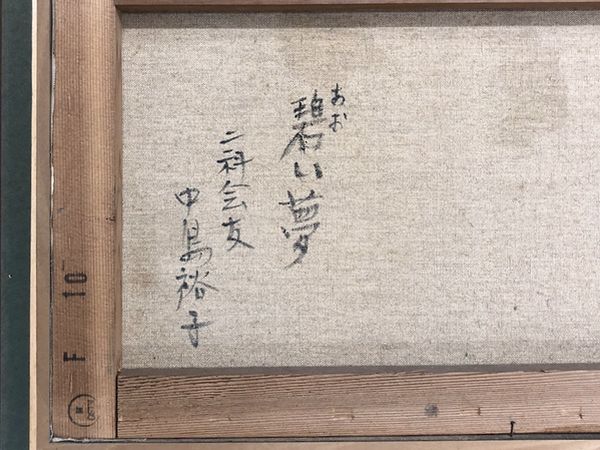 碧い夢
あお
二科会友
中島裕子
F 10